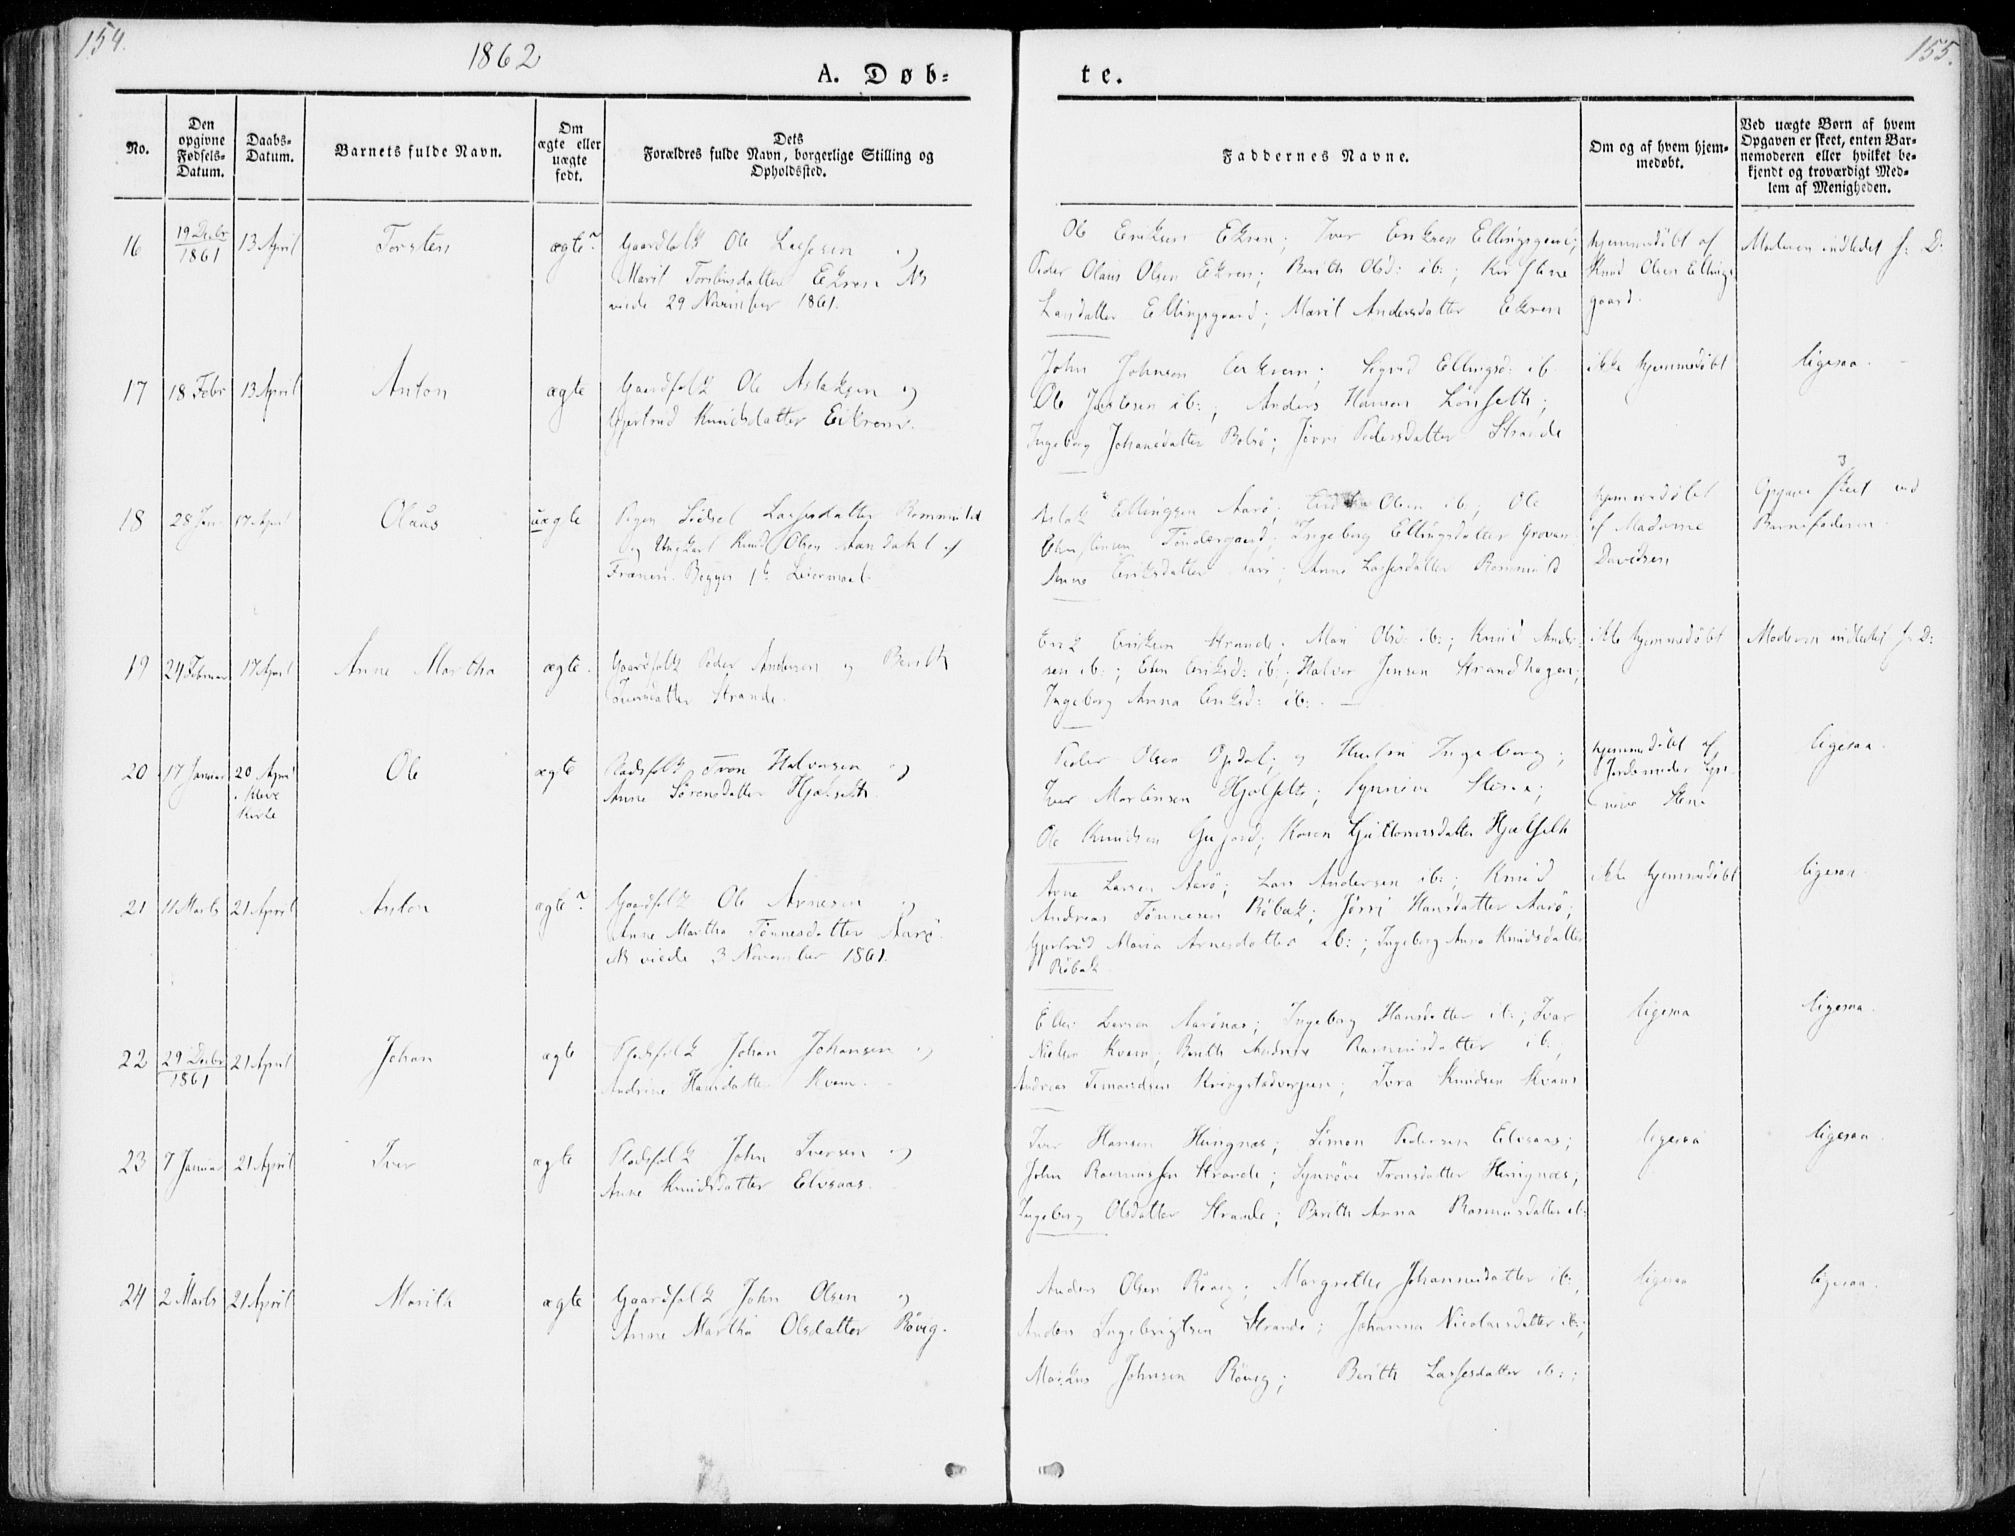 154.
1862
A. Døb-
te.
155.
No.
Den
opgivne
Fødsels-
Datum.
Daabs-
Datum.
Barnets fulde Navn.
Om
ægte eller
uægte
født.
Dets
Forældres fulde Navn, borgerlige Stilling og
Opholdssted.
Faddernes Navne.
Om og af hvem hjem-
medøbt.
Ved uægte Børn af hvem
Opgaven er skeet, enten Bar-
nemoderen eller hvilket be-
kjendt og troværdigt Med-
lem af Menigheden.
16
19 Decbr
1861
13 April
Torsten
ægte
Gaardfolk Ole Lassesen og
Marit Torstensdatter Ekrem NB
viede 29 November 1861.
Ole Eriksen Ekrem; Iver Eriksen Ellingsgaard;
Peder Olaus Olsen Ekrem; Berith Olsd: ib:; Kirstene
Larsdatter Ellingsgaard; Marit Andersdatter Ekrem
hjemmedøbt af
Knud Olsen Ellings
gaard.
Moderen indledet s: D:
17
18 Febr
13 April
Anton
ægte
Gaardfolk Ole Aslaksen og
Gjertrud Knudsdatter Eikrem.
John Johnsen; Sigrid Ellingsd: ib:
Ole ib:; Anders Hansen Lønseth;
Ingeborg Johansdatter Bolsø; Jørri Pedersdatter Strande
ikke hjemmedøbt
ligesaa.
18
28 Jan
17 April
Olaus
uægte
Pigen Sidsel Lassesdatter
og Ungkarl Knud Olsen Mandahl af
Frænen. Begges 1te Leiermaal.
Aslak Ellingsen Aarø; Olsen ib, Ole
Tøndergaard; Ingeborg Ellingsdatter
Anne Eriksdatter; Anne Lassesdatter
hjemmedøbt
af Madame
Davidsen
Opgave skeet ved
Barnefaderen.
19
24 Februar
17 April
Anne Martha
ægte.
Gaardfolk Peder Andersen og Berith
Iversdatter Strande.
Erik Eriksen Strande; Mari Olsd: ib:; Knud Ander-
sen ib:; Eriksd: ib:; Halvor Jensen Strandhagen;
Ingeborg Anna Eriksd: ib:.
ikke hjemmedøbt
Moderen indledet s: D:
20
17 Januar
20 April
i Kleve
Kirke
Ole
ægte
Pladsfolk Halvorsen og
Anne Sørensdatter Hjelseth.
Peder Olsen Opdal; og Hustru Ingeborg;
Iver Mortensen Hjelseth; Synnøve Stene;
Ole Knudsen; Karen Guttormsdatter Hjelseth
hjemmedøbt af
Jordemoder Syn-
nøve Stene
ligesaa.
21
11 Marts
21 April
Anton
ægte
Gaardfolk Ole Arnesen og
Anne Martha Tønnesdatter Aarø.
NB viede 3 November 1861.
Arne Larsen Aarø; Lars Andersen ib:; Knud
Andreas Tønnesen Røbak; Jørri Hansdatter Aarø;
Gjertrud Maria Arnesdatter ib:; Ingeborg Anna Knudsdatter
Røbak
ikke hjemmedøbt
ligesaa
22
29 Decbr
1861
21 April
Johan
ægte
Pladsfolk Johan Johansen og
Andrine Hansdatter Kvam.
Larsen Aarønæs; Ingeborg Hansdatter ib:; Ivar
Nielsen Kvam; Berith Rasmusdatter ib:;
Andreas Kringstadvorpen; Knudsen Kvam
ligesaa
ligesaa.
23
7 Januar
21 April
Iver
ægte
Pladsfolk John Iversen og
Anne Knudsdatter Elvsaas.
Iver Hansen Hungnæs; Simon Pedersen Elvsaas;
John Rasmussen Strande; Synnøve Tronsdatter Hungnæs;
Ingeborg Olsdatter Strande; Berith Anna Rasmusdatter ib:
ligesaa
ligesaa.
24
2 Marts
21 April
Marith
ægte
Gaardfolk John Olsen og
Anne Martha Olsdatter Røvig.
Anders Olsen Røvig; Margrethe Johannesdatter ib:;
Anders Ingebrigtsen Strande; Johanna Nicolaisdatter ib:;
Markus Johnsen Røvig; Berith Lassesdatter ib:;
ligesaa
ligesaa.